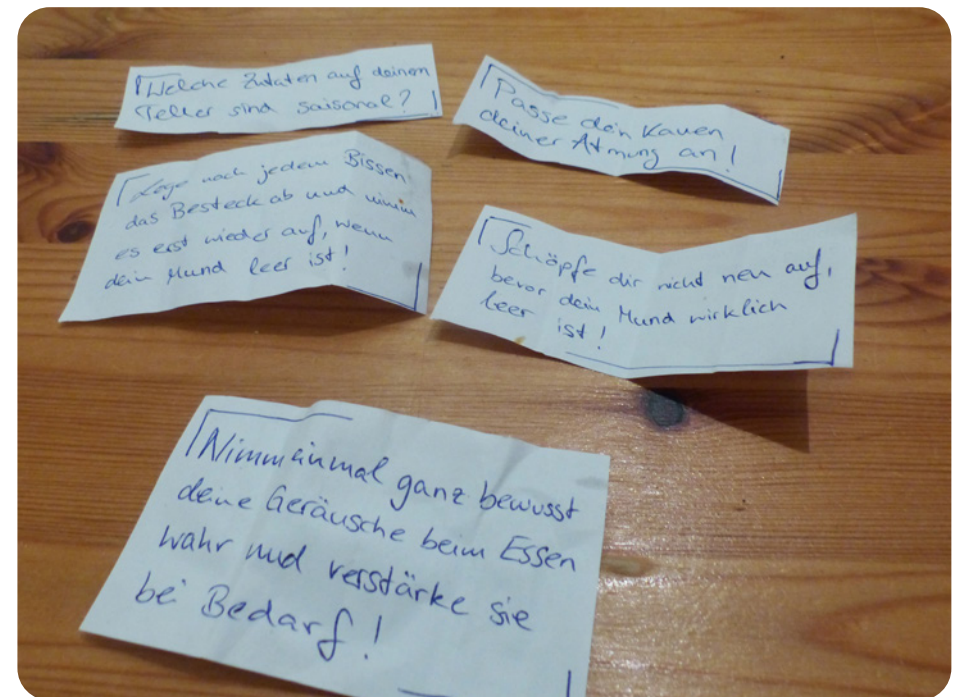 Welche Zutaten auf deinem
Teller sind saisonal?
Passe dein Kauen
deiner Atmung an!
Lege nach jedem Bissen
das Besteck ab und nimm
es erst wieder auf, wenn
dein Mund leer ist!
Schöpfe dir nicht neu auf,
bevor dein Mund wirklich
leer ist!
Nimm einmal ganz bewusst
deine Geräusche beim Essen
wahr und verstärke sie
bei Bedarf!